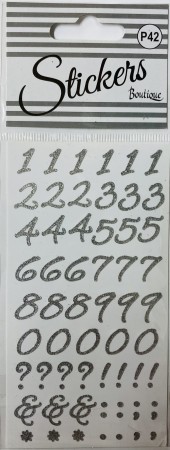 P42
Stickers
Boutique
1 1 1 1 1 1
2 2 2 3 3 3
4 4 4 5 5 5
6 6 6 7 7 7
8 8 8 9 9 9
0 0 0 0 0
? ? ? ? ! ! ! !
& & & : : ; ;
* * * : : ; ;